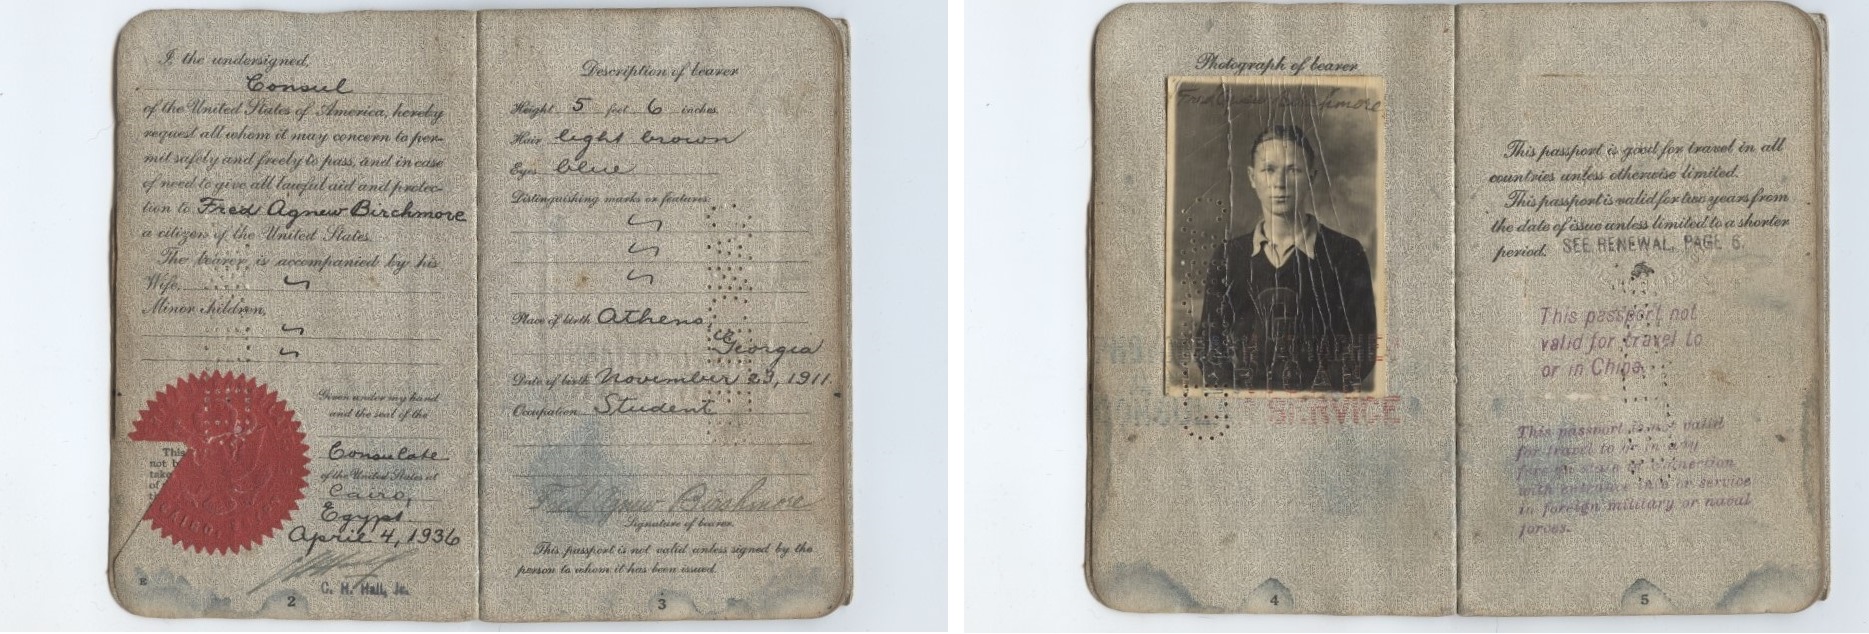 I, the undersigned,
Consul
of the United States of America, hereby
request all whom it may concern to per-
mit safely and freely to pass, and in case
of need to give all lawful aid and protec-
tion to Fred Agnew Birchmore
a citizen of the United States.
The bearer is accompanied by his
Wife,
Minor children,
Given under my hand
and the seal of the
Consulate
of the United States at
Cairo,
Egypt
April 4, 1936
This
not b
take
of
th
CAIRO,
C. H. Hall, Jr.
E
2
Description of bearer
Height 5 feet 6 inches.
Hair light brown
Eyes blue
Distinguishing marks or features:
Place of birth Athens,
Georgia
Date of birth November 23, 1911.
Occupation Student
Fred Agnew Birchmore
Signature of bearer.
This passport is not valid unless signed by the
person to whom it has been issued.
3
Photograph of bearer
Fred Agnew Birchmore
SERVICE
4
This passport is good for travel in all
countries unless otherwise limited.
This passport is valid for two years from
the date of issue unless limited to a shorter
period. SEE RENEWAL, PAGE 6.
This passport not
valid for travel to
or in China.
This passport is not valid
for travel to or in any
foreign state in connection
with entrance into or service
in foreign military or naval
forces.
5